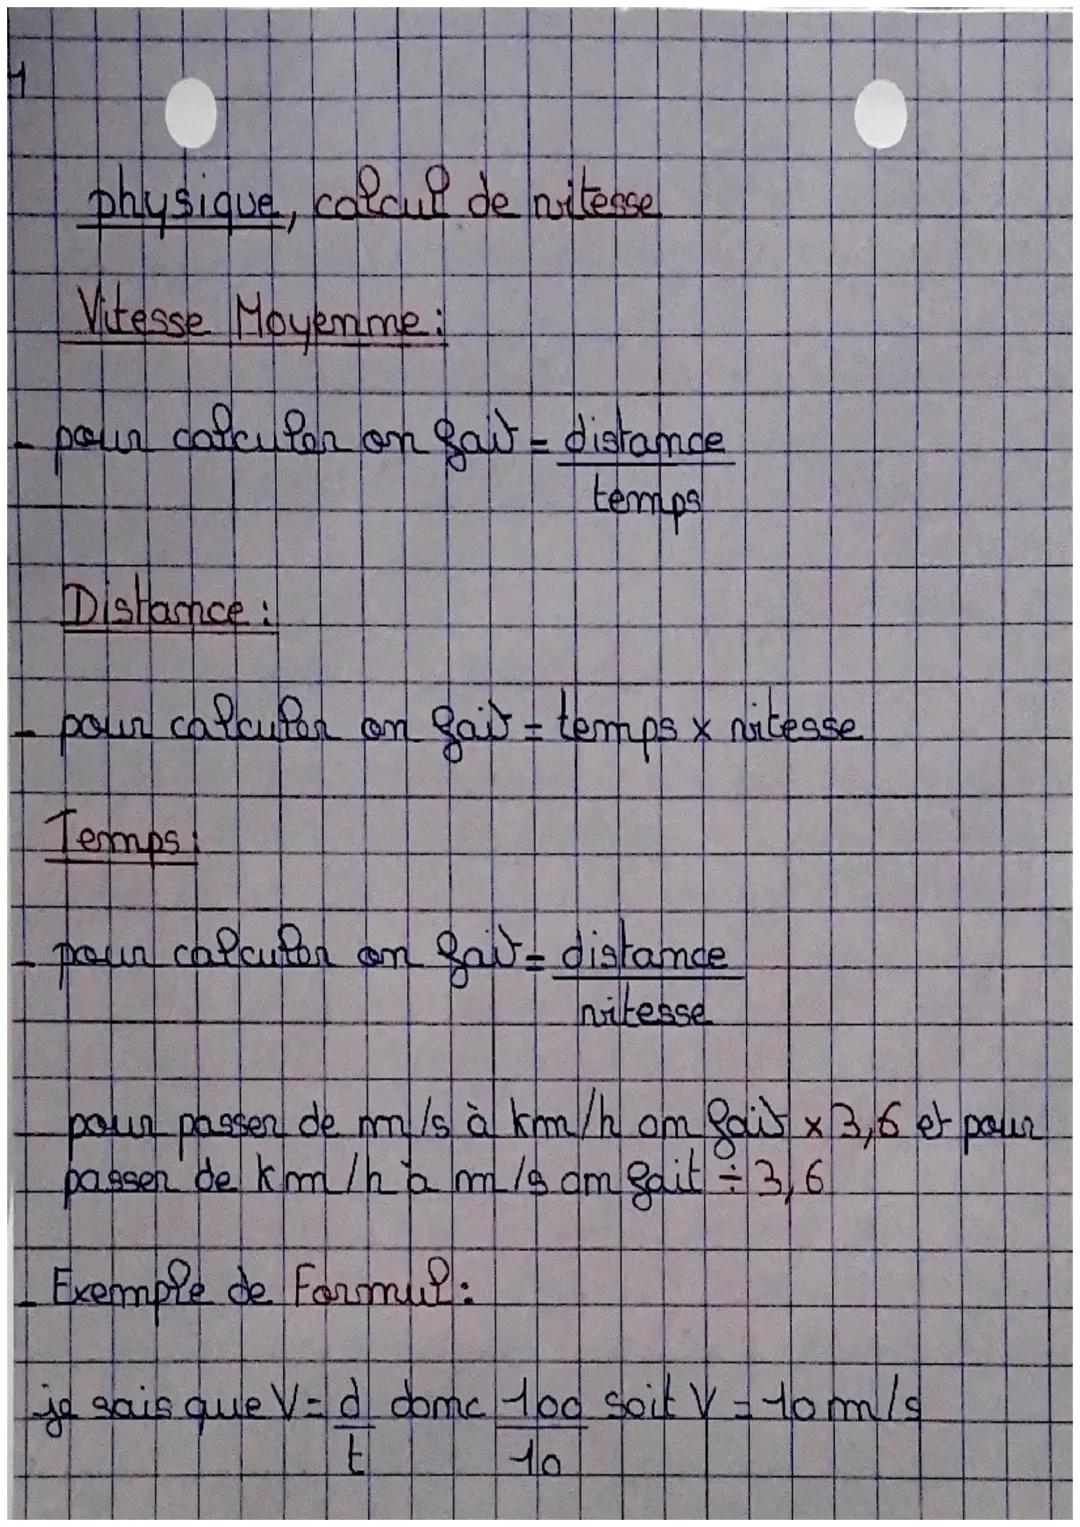 physique, calcul de vitesse
Vitesse Moyenne :
- pour calculer on fait = distance
temps
Distance :
- pour calculer on fait = temps x vitesse
Temps :
- pour calculer on fait = distance
vitesse
pour passer de m/s à km/h on fait x 3,6 et pour
passer de km/h à m/s on fait ÷ 3,6
- Exemple de Formul :
je sais que V = d donc 100 soit V = 10 m/s
t 10